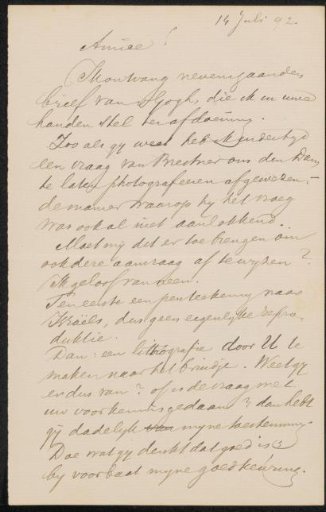 14 Juli 92.
Amice!
Ontvang nevensgaanden
brief van , die ik in uwe
handen stel ter afdoening.
Zoo als gy weet heb
een vraag van Breitner om den
te laten photografeeren afgewezen,—
de manier waarop hy het vroeg
was ook al niet aanlokkend.
Moet my dat er toe brengen om
ook deze aanvraag af te wyzen?
Ik geloof van neen.
Ten eerste een penteekening naar
Israëls, dus geen eigenlyke repro-
duktie.
Dan: een lithografie door U te
maken naar het bruidje. Weet gy
er dus van? of is de vraag met
uw voorkennis gedaan? dan hebt
gy dadelyk myne toestemming.
Doe wat gy denkt dat goed is;
by voorbaat myne goedkeuring.